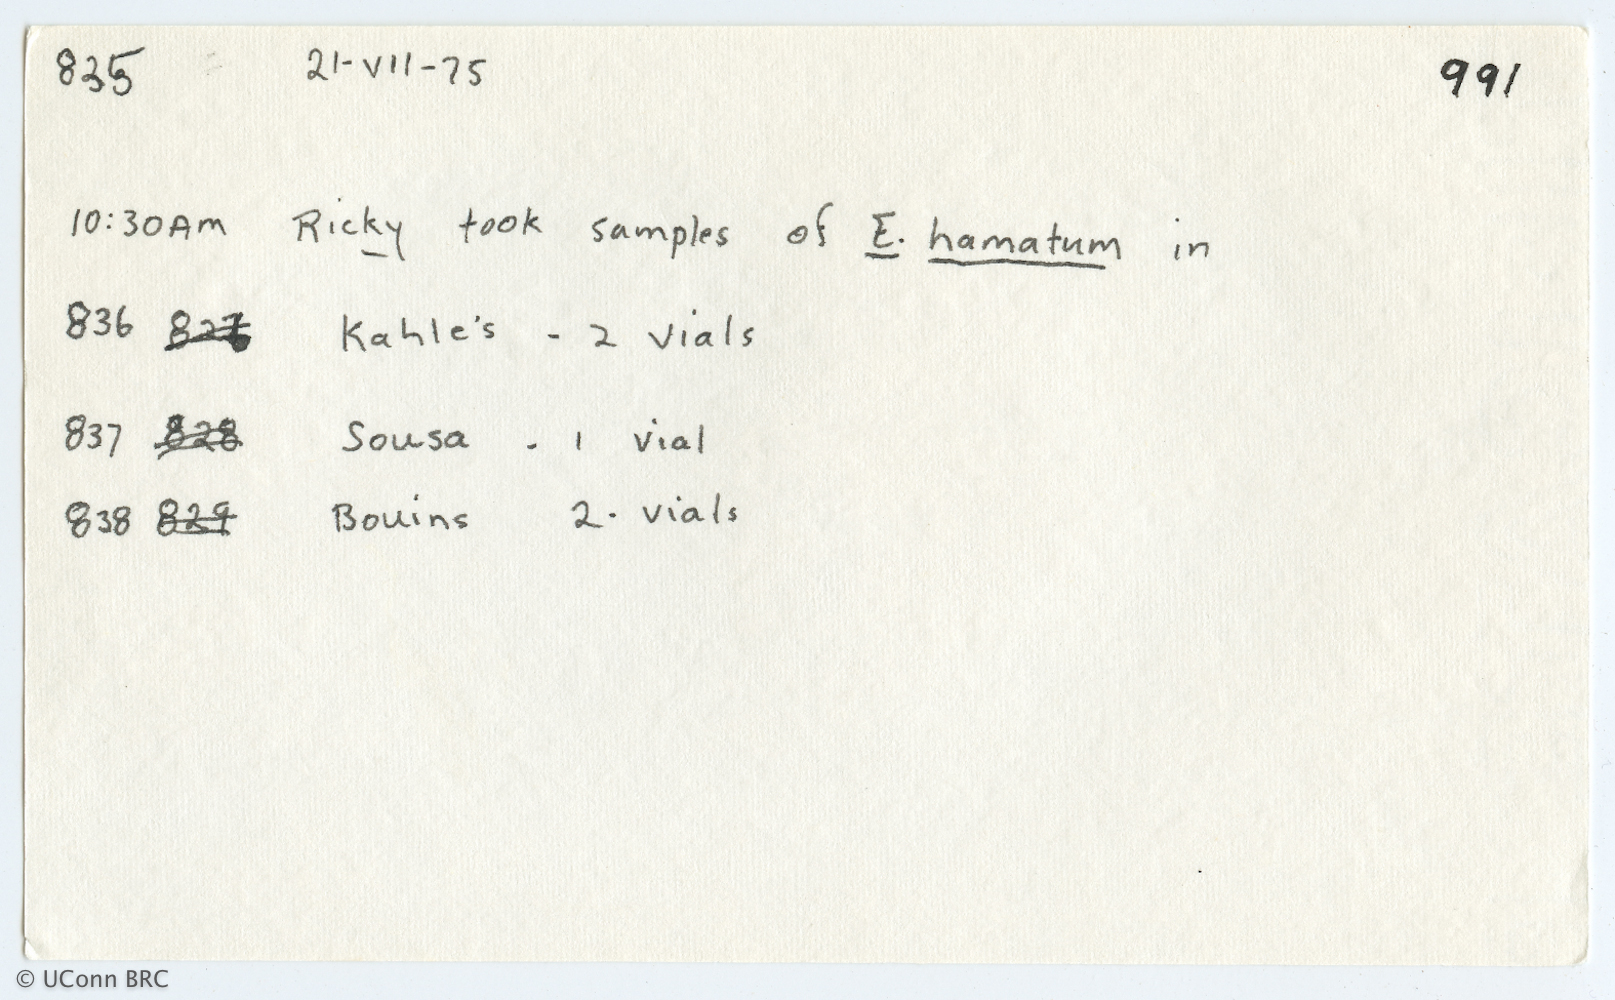 835 21-VII-75 991
10:30AM Ricky took samples of E. hamatum in
836 827 Kahle's - 2 vials
837 828 Sousa - 1 vial
838 829 Bouins 2. vials
© UConn BRC